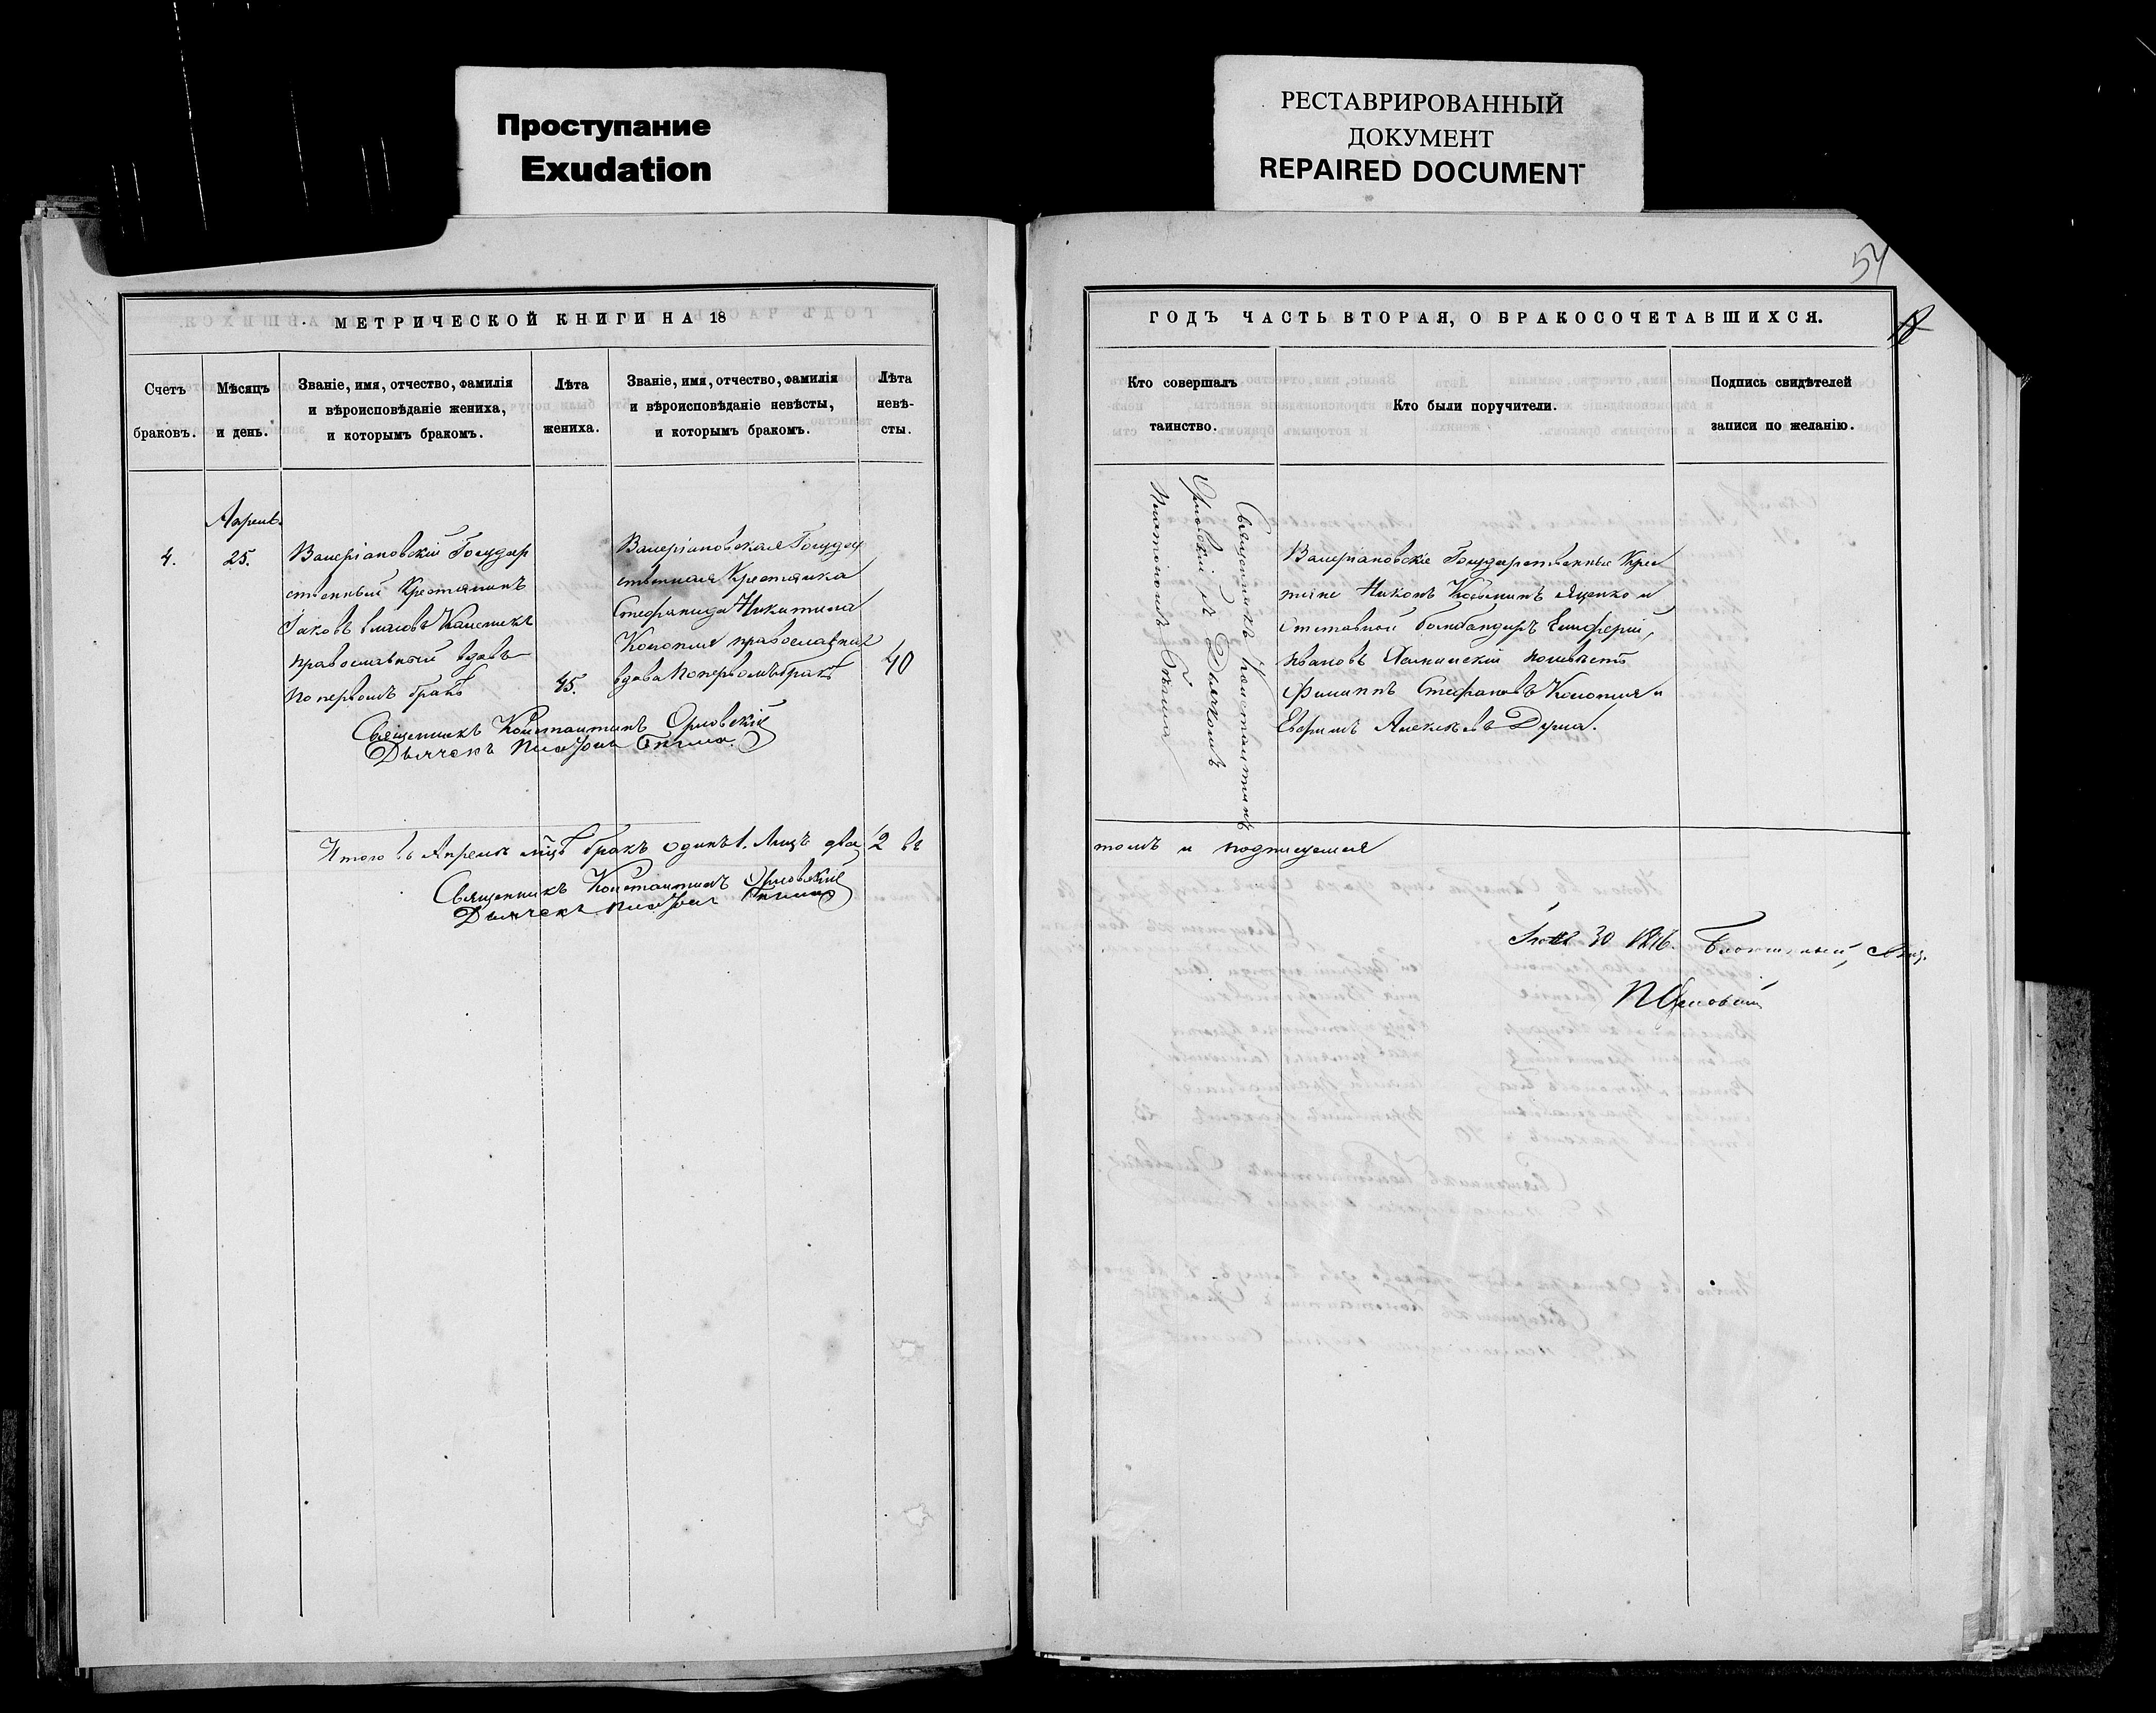 Проступание
Exudation
РЕСТАВРИРОВАННЫЙ
ДОКУМЕНТ
REPAIRED DOCUMENT
54
МЕТРИЧЕСКОЙ КНИГИ НА 18
Счетъ
браковъ.
Мѣсяцъ
и день.
Званіе, имя, отчество, фамилія
и вѣроисповѣданіе жениха,
и которымъ бракомъ.
Лѣта
жениха.
Званіе, имя, отчество, фамилія
и вѣроисповѣданіе невѣсты,
и которымъ бракомъ.
Лѣта
невѣ-
сты.
Апрель
4.
25.
Валеріановскій Государ
ственный Крестянинъ
Іаковъ Власовъ
православный вдовъ
по первомъ бракѣ
45.
Валеріановская Государ
ственная Крестянка
Стефанида Никитина
Колопля православная
вдова по первомъ бракѣ
40
Священникъ Константинъ Орловскій
Дьячекъ
Итого въ Апрелѣ мцѣ бракъ одинъ 1. Лицъ два 2 въ
Священникъ Константинъ Орловскій
Дьячекъ
ГОДЪ ЧАСТЬ ВТОРАЯ, О БРАКОСОЧЕТАВШИХСЯ.
Кто совершалъ
таинство.
Кто были поручители.
Подпись свидѣтелей
записи по желанію.
Священникъ Константинъ
Орловскій съ Дьячкомъ
Валеріановскіе Государственные Крес
тяне Никонъ Косьминъ Яценко и
Отставной бомбандиръ Елиферій
Ивановъ по невѣстѣ
Филиппъ Стефановъ Колопля и
Ефримъ Алексѣевъ Дума.
томъ и подписуемся
30 1876. Благочинный, Свящ.
П Орловскій